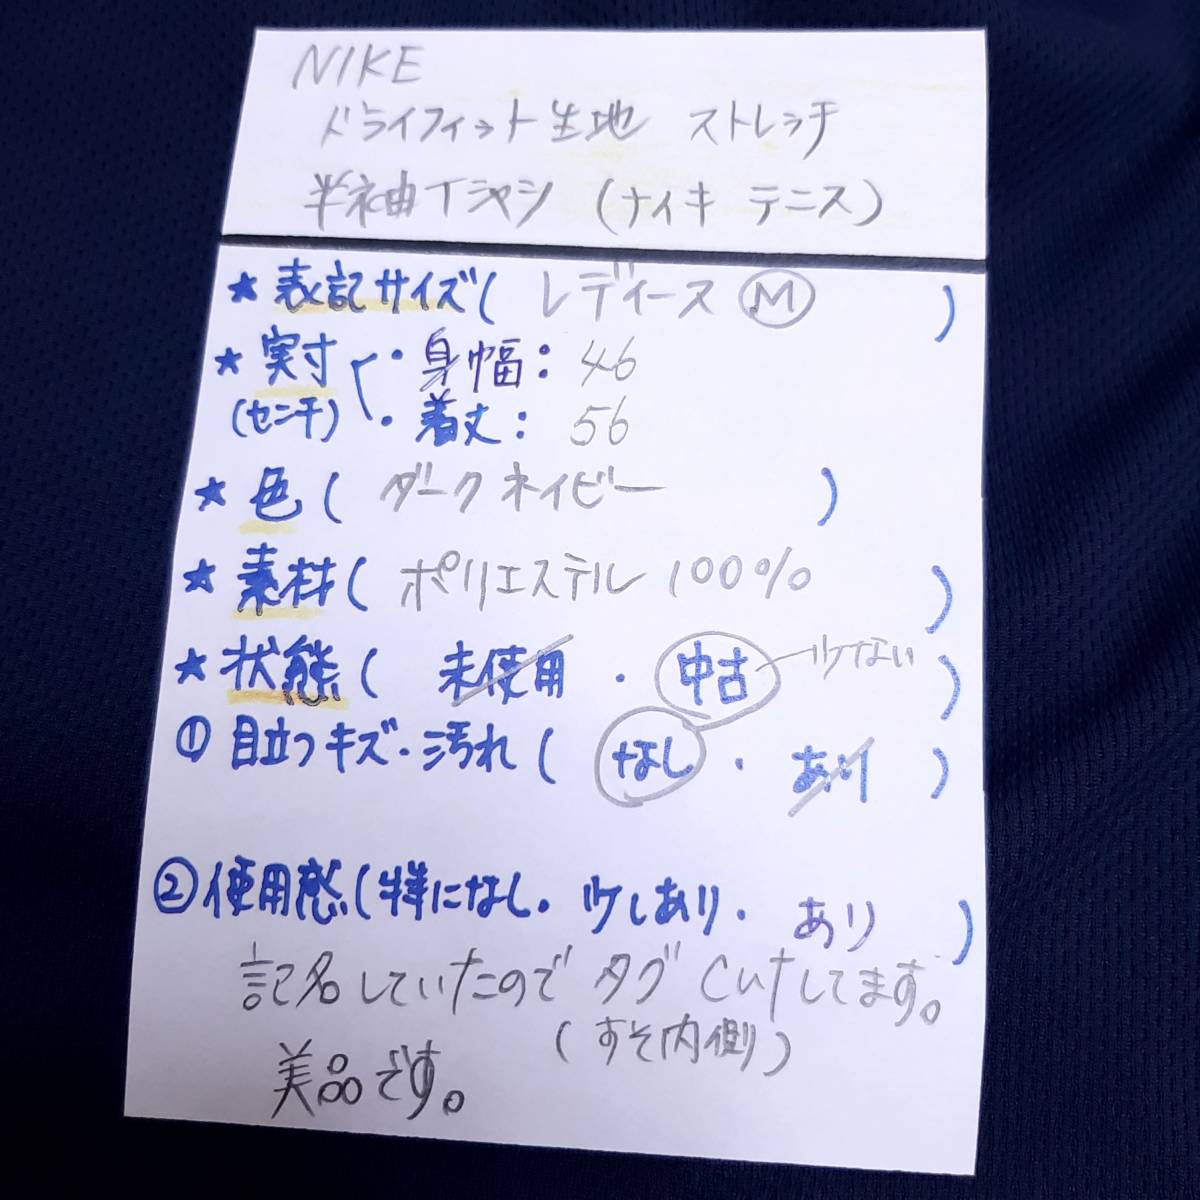 NIKE
ドライフィット生地 ストレッチ
半袖Tシャツ (ナイキ テニス)
★表記サイズ( レディース Ⓜ )
★実寸 ・身幅: 46
(センチ) ・着丈: 56
★色( ダークネイビー )
★素材( ポリエステル 100% )
★状態( 未使用 ・ 中古 少ない )
①目立つキズ・汚れ( なし ・ あり )
②使用感(特になし・ 少しあり・ あり )
記名していたのでタグCutしてます。
(すそ内側)
美品です。